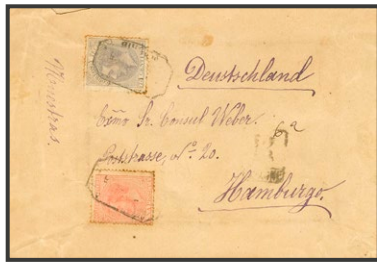 Muestras.
Deutschland
Exmo Sr. Consul Weber.
Poststrasse, Nº 20.
Hamburgo.